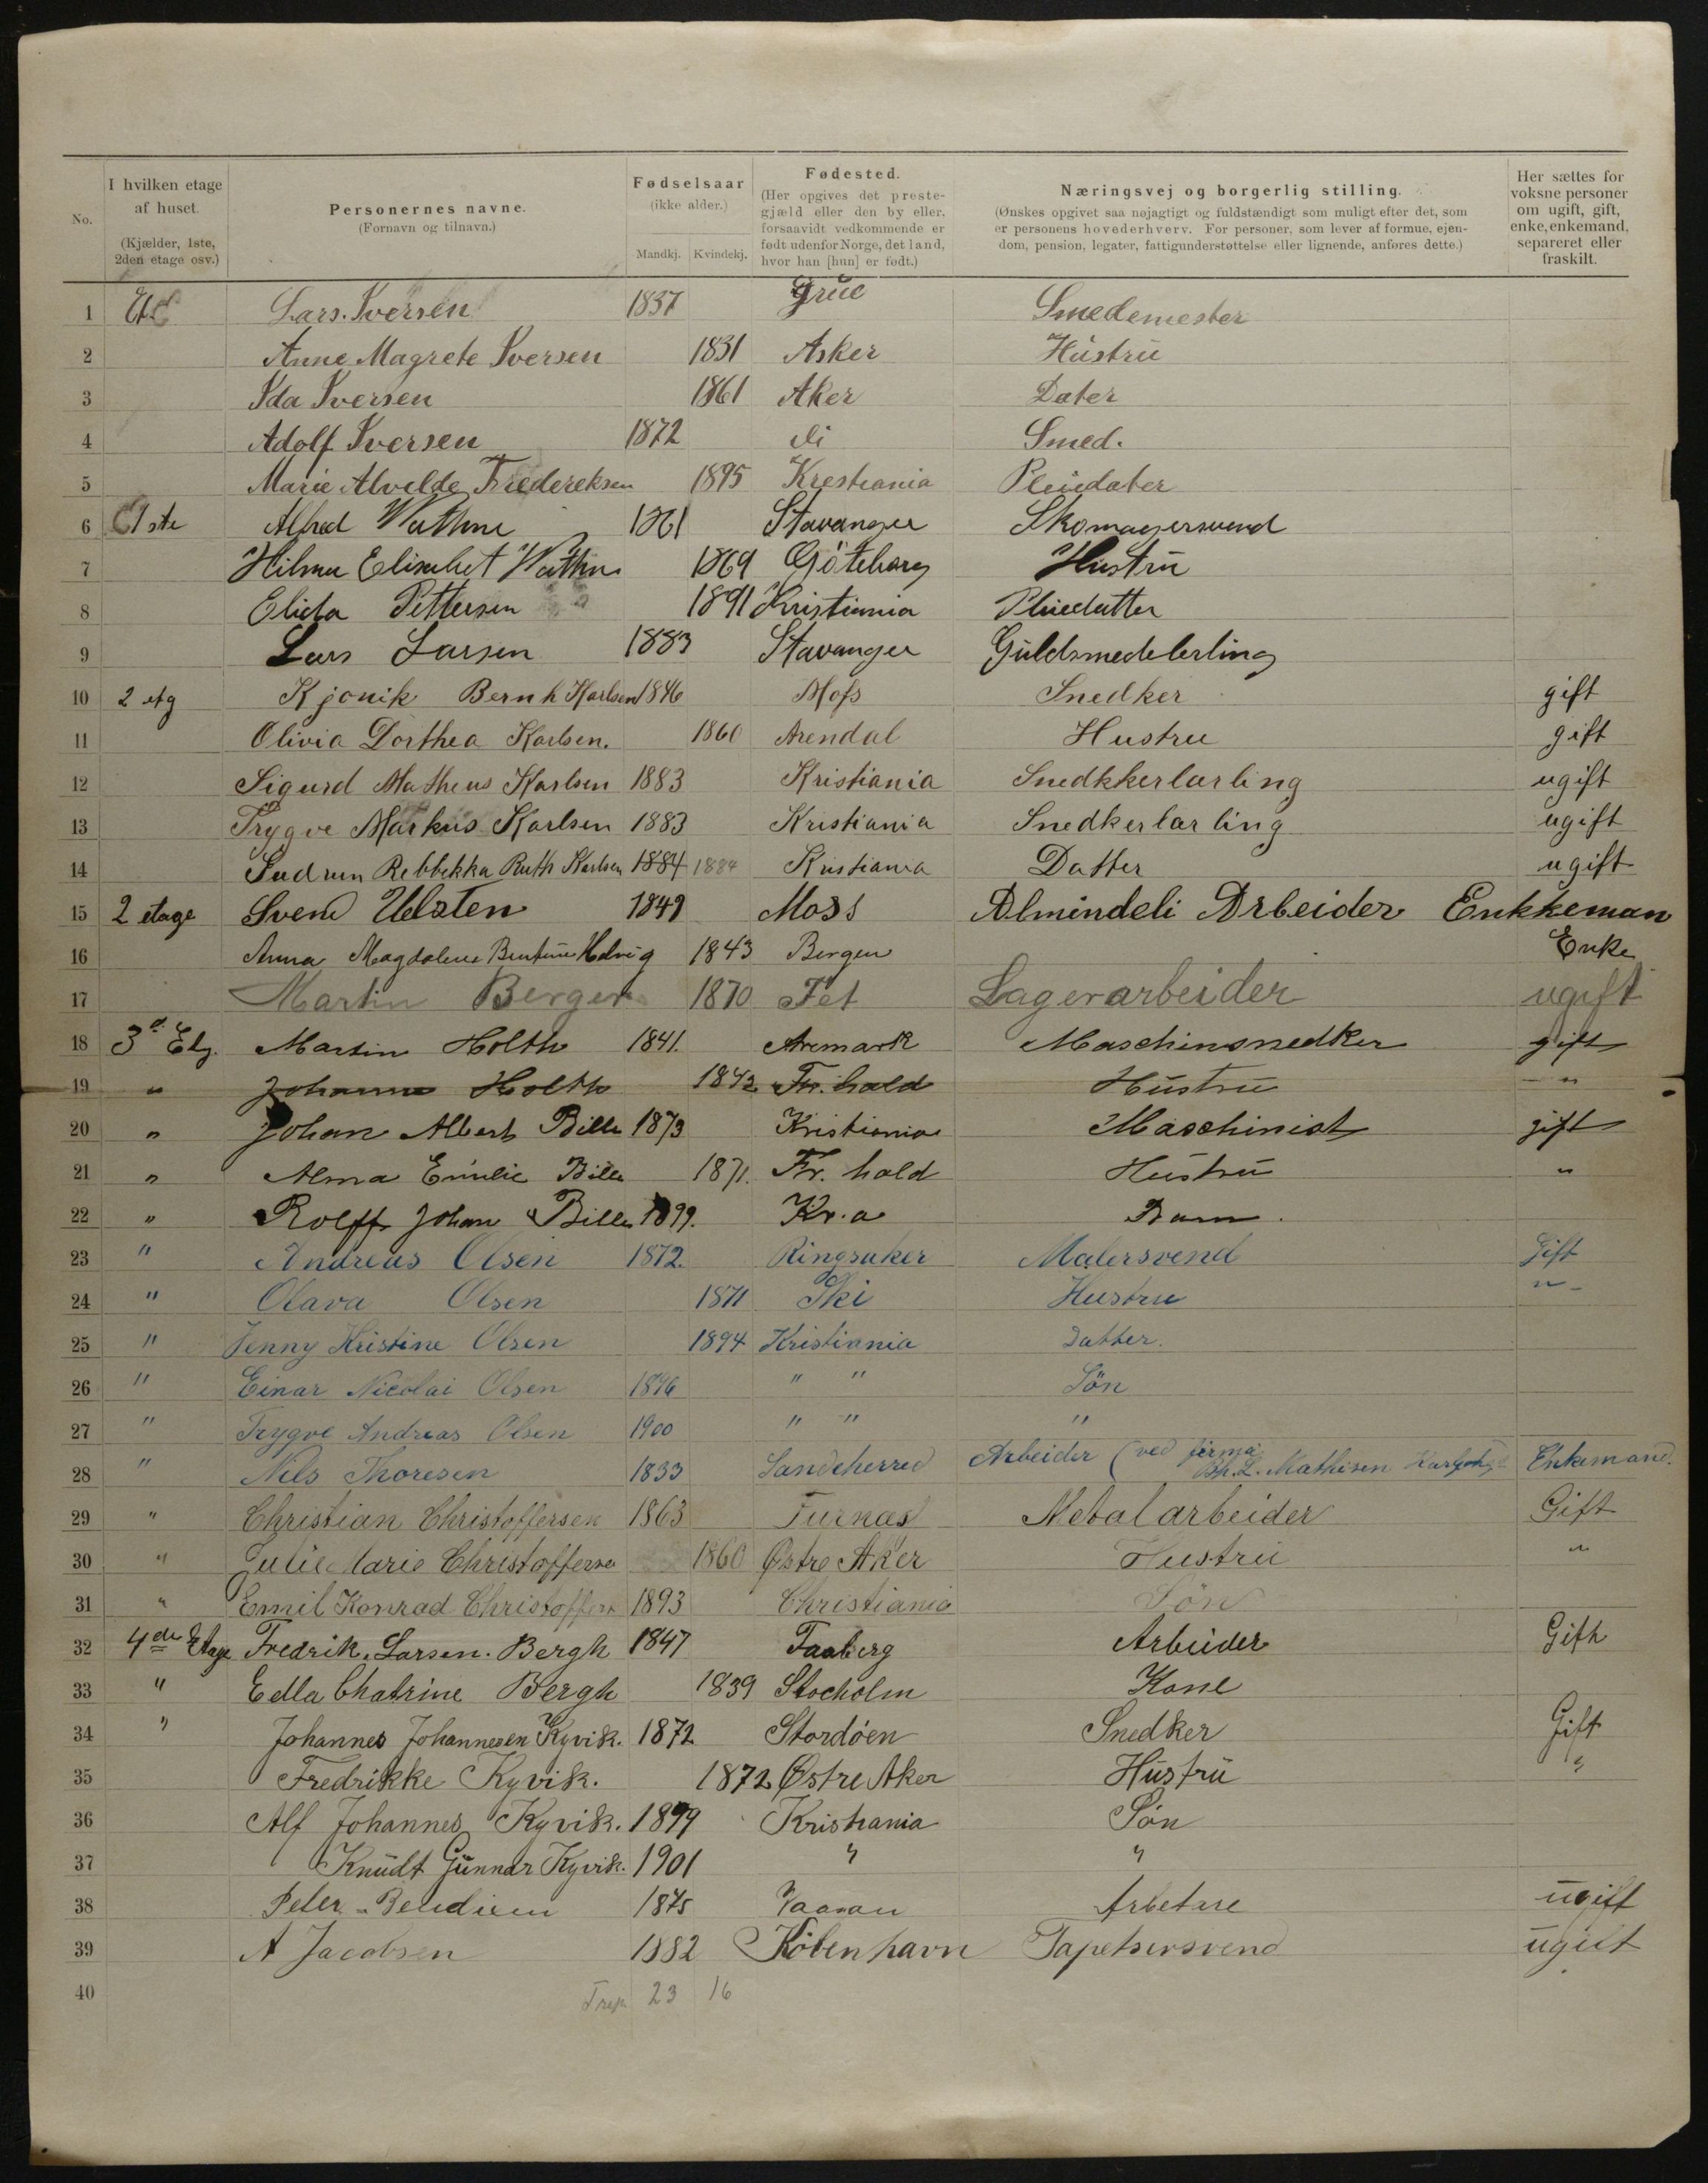 No.
I hvilken etage
af huset.
(Kjælder, 1ste,
2den etage osv.)
Personernes navne.
(Fornavn og tilnavn.)
Fødselsaar
(ikke alder.)
Mandkj. Kvindekj.
Fødested.
(Her opgives det preste-
gjæld eller den by eller,
forsaavidt vedkommende er
født udenfor Norge, det land,
hvor han [hun] er født.)
Næringsvej og borgerlig stilling.
(Ønskes opgivet saa nøjagtigt og fuldstændigt som muligt efter det, som
er personens hovederhverv. For personer, som lever af formue, ejen-
dom, pension, legater, fattigunderstøttelse eller lignende, anføres dette.)
Her sættes for
voksne personer
om ugift, gift,
enke, enkemand,
separeret eller
fraskilt.
1 Lars. Iversen 1837 Grue Smedemester
2 Anne Magrete Iversen 1831 Asker Hustru
3 Ida Iversen 1861 Aker Dater
4 Adolf Iversen 1872 di Smed.
5 Marie Alvelde Fredereksen 1895 Krestiania Pleiedater
6 1ste Alfred Wathne 1861 Stavanger Skomagersvend
7 Hilma Elisabet Wathne 1869 Göteborg Hustru
8 Elida Pettersen 1891 Kristiania Pleiedatter
9 Lars Larsen 1883 Stavanger Guldsmedelerling
10 2 etg Kjønik Bernh Karlsen 1846 Moss Snedker gift
11 Olivia Dorthea Karlsen. 1860 Arendal Hustru gift
12 Sigurd Matheus Karlsen 1883 Kristiania Snedkkerlarling ugift
13 Trygve Markus Karlsen 1883 Kristiania Snedkerlarling ugift
14 Gudrun Rebbekka Ruth Karlsen 1884 1884 Kristiania Datter ugift
15 2 etage Svend Ulsten 1849 Moss Almindeli Arbeider Enkkeman
16 Anna Magdalene Helvig 1843 Bergen Enke
17 Martin Berger 1870 Fet Lagerarbeider ugift
18 3d Etg. Martin Holth 1841. Aremark Maschinsnedker gift
19 " Johanne Holth 1842 Fr. hald Hustru — "
20 " Johan Albert Bille 1873 Kristiania Maschinist gift
21 " Alma Emilie Bille 1871. Fr. hald Hustru "
22 " Rolff Johan Bille 1899. Kr.a Barn.
23 " Andreas Olsen 1872. Ringsaker Malersvend Gift
24 " Olava Olsen 1871 Ski Hustru " -
25 " Jenny Kristine Olsen 1894 Kristiania Datter.
26 " Einar Nicolai Olsen 1896 " " Sön
27 " Trygve Andreas Olsen 1900 " " "
28 " Nils Thoresen 1833 Sandeherred Arbeider (ved firma L. Mathisen Enkemand.
29 " Christian Christoffersen 1863 Furnæs Metalarbeider Gift
30 " Julie Marie Christoffersen 1860 Østre Aker Hustru "
31 " Emil Konrad Christoffers 1893 Christiania Sön
32 4de Etage Fredrik. Larsen. Bergh 1847 Faaberg Arbeider Gift
33 " Edla Chatrine Bergh 1839 Stocholm Kone
34 " Johannes Johannesen Kyvik. 1872 Stordöen Snedker Gift
35 Fredrikke Kyvik. 1872 Østre Aker Hustru "
36 Alf Johannes Kyvik. 1899 Kristiania Sön
37 Knudt Gunnar Kyvik. 1901 " "
38 Peter 1875 ugift
39 A Jacobsen 1882 København Tapetsersvend ugift
40
23 16